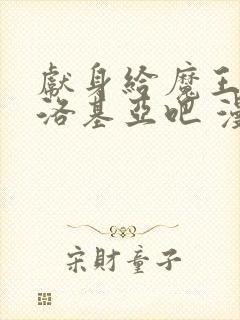 獻身給魔王
洛基亞吧 漫
宋財童子